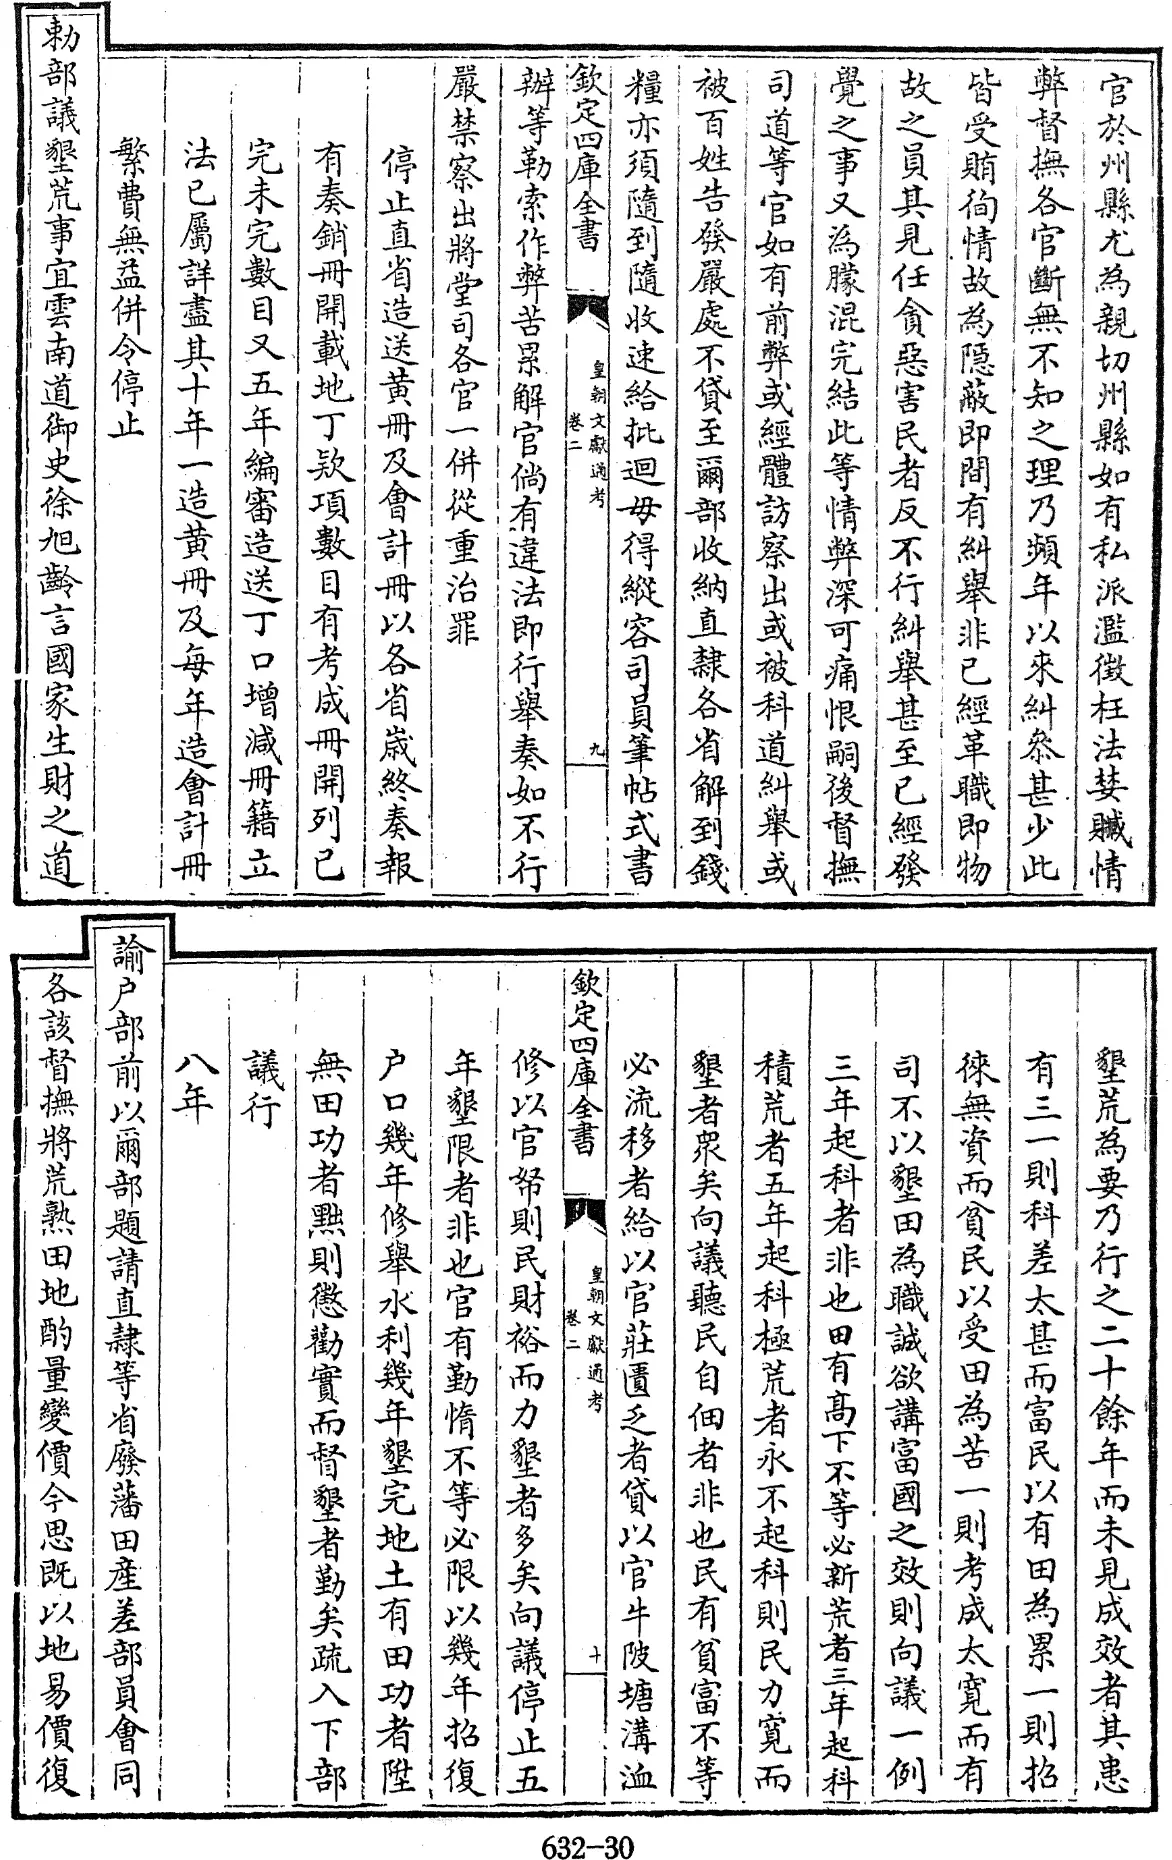 官於州縣尤為親切州縣如有私派濫徴枉法婪贓情
弊督撫各官斷無不知之理乃頻年以來糾叅甚少此
皆受賄徇情故為隠蔽即間有糾舉非已經革職即物
故之員其見任貪惡害民者反不行糾舉甚至已經發
覺之事又為朦混完結此等情弊深可痛恨嗣後督撫
司道等官如有前弊或經體訪察出或被科道糾舉或
被百姓告發嚴處不貸至爾部收納直隸各省解到錢
糧亦須隨到隨收速給批迴毋得縱容司員筆帖式書
欽定四庫全書
皇朝文獻通考
卷二
九
辦等勒索作弊苦累解官倘有違法即行舉奏如不行
嚴禁察出將堂司各官一併從重治罪
停止直省造送黄冊及會計冊以各省嵗終奏報
有奏銷冊開載地丁欵項數目有考成冊開列已
完未完數目又五年編審造送丁口增減冊籍立
法已屬詳盡其十年一造黄冊及每年造會計冊
繁費無益併令停止
勅部議墾荒事宜雲南道御史徐旭齡言國家生財之道
墾荒為要乃行之二十餘年而未見成效者其患
有三一則科差太甚而富民以有田為累一則招
徠無資而貧民以受田為苦一則考成太寛而有
司不以墾田為職誠欲講富國之效則向議一例
三年起科者非也田有髙下不等必新荒者三年起科
積荒者五年起科極荒者永不起科則民力寛而
墾者衆矣向議聽民自佃者非也民有貧富不等
必流移者給以官莊匱乏者貸以官牛陂塘溝洫
欽定四庫全書
皇朝文獻通考
卷二
十
修以官帑則民財裕而力墾者多矣向議停止五
年墾限者非也官有勤惰不等必限以幾年招復
户口幾年修舉水利幾年墾完地土有田功者陞
無田功者黜則懲勸實而督墾者勤矣疏入下部
議行
八年
諭户部前以爾部題請直隷等省廢藩田産差部員會同
各該督撫將荒熟田地酌量變價今思既以地易價復
632-30